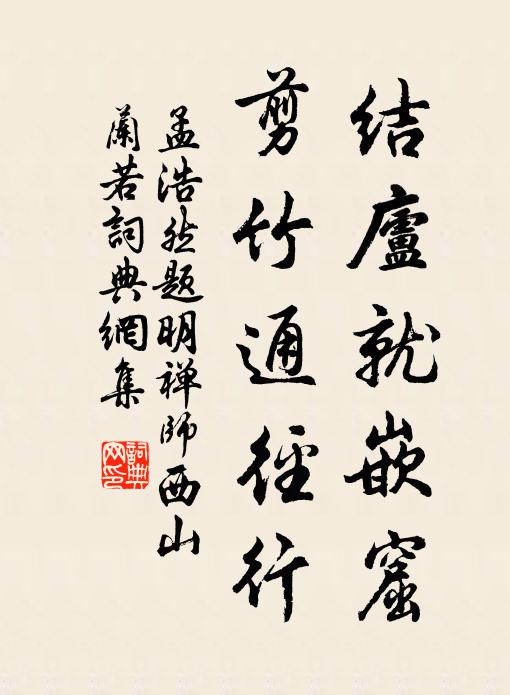 結廬就嵌窟
剪竹通徑行
孟浩然題明禅師西山
蘭若詞典網集
詞典网印